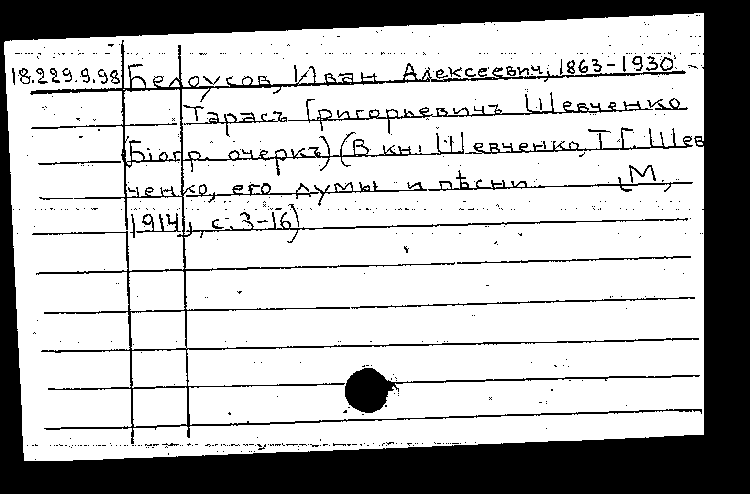 18.229.9.98 Белоусов, Иван Алексеевич, 1863-1930
Тарасъ Григорьевичъ Шевченко
(Біогр. очеркъ) (В кн: Шевченко, Т.Г. Шев
ченко, его думы и пѣсни. [М.,
1914], с. 3-16)